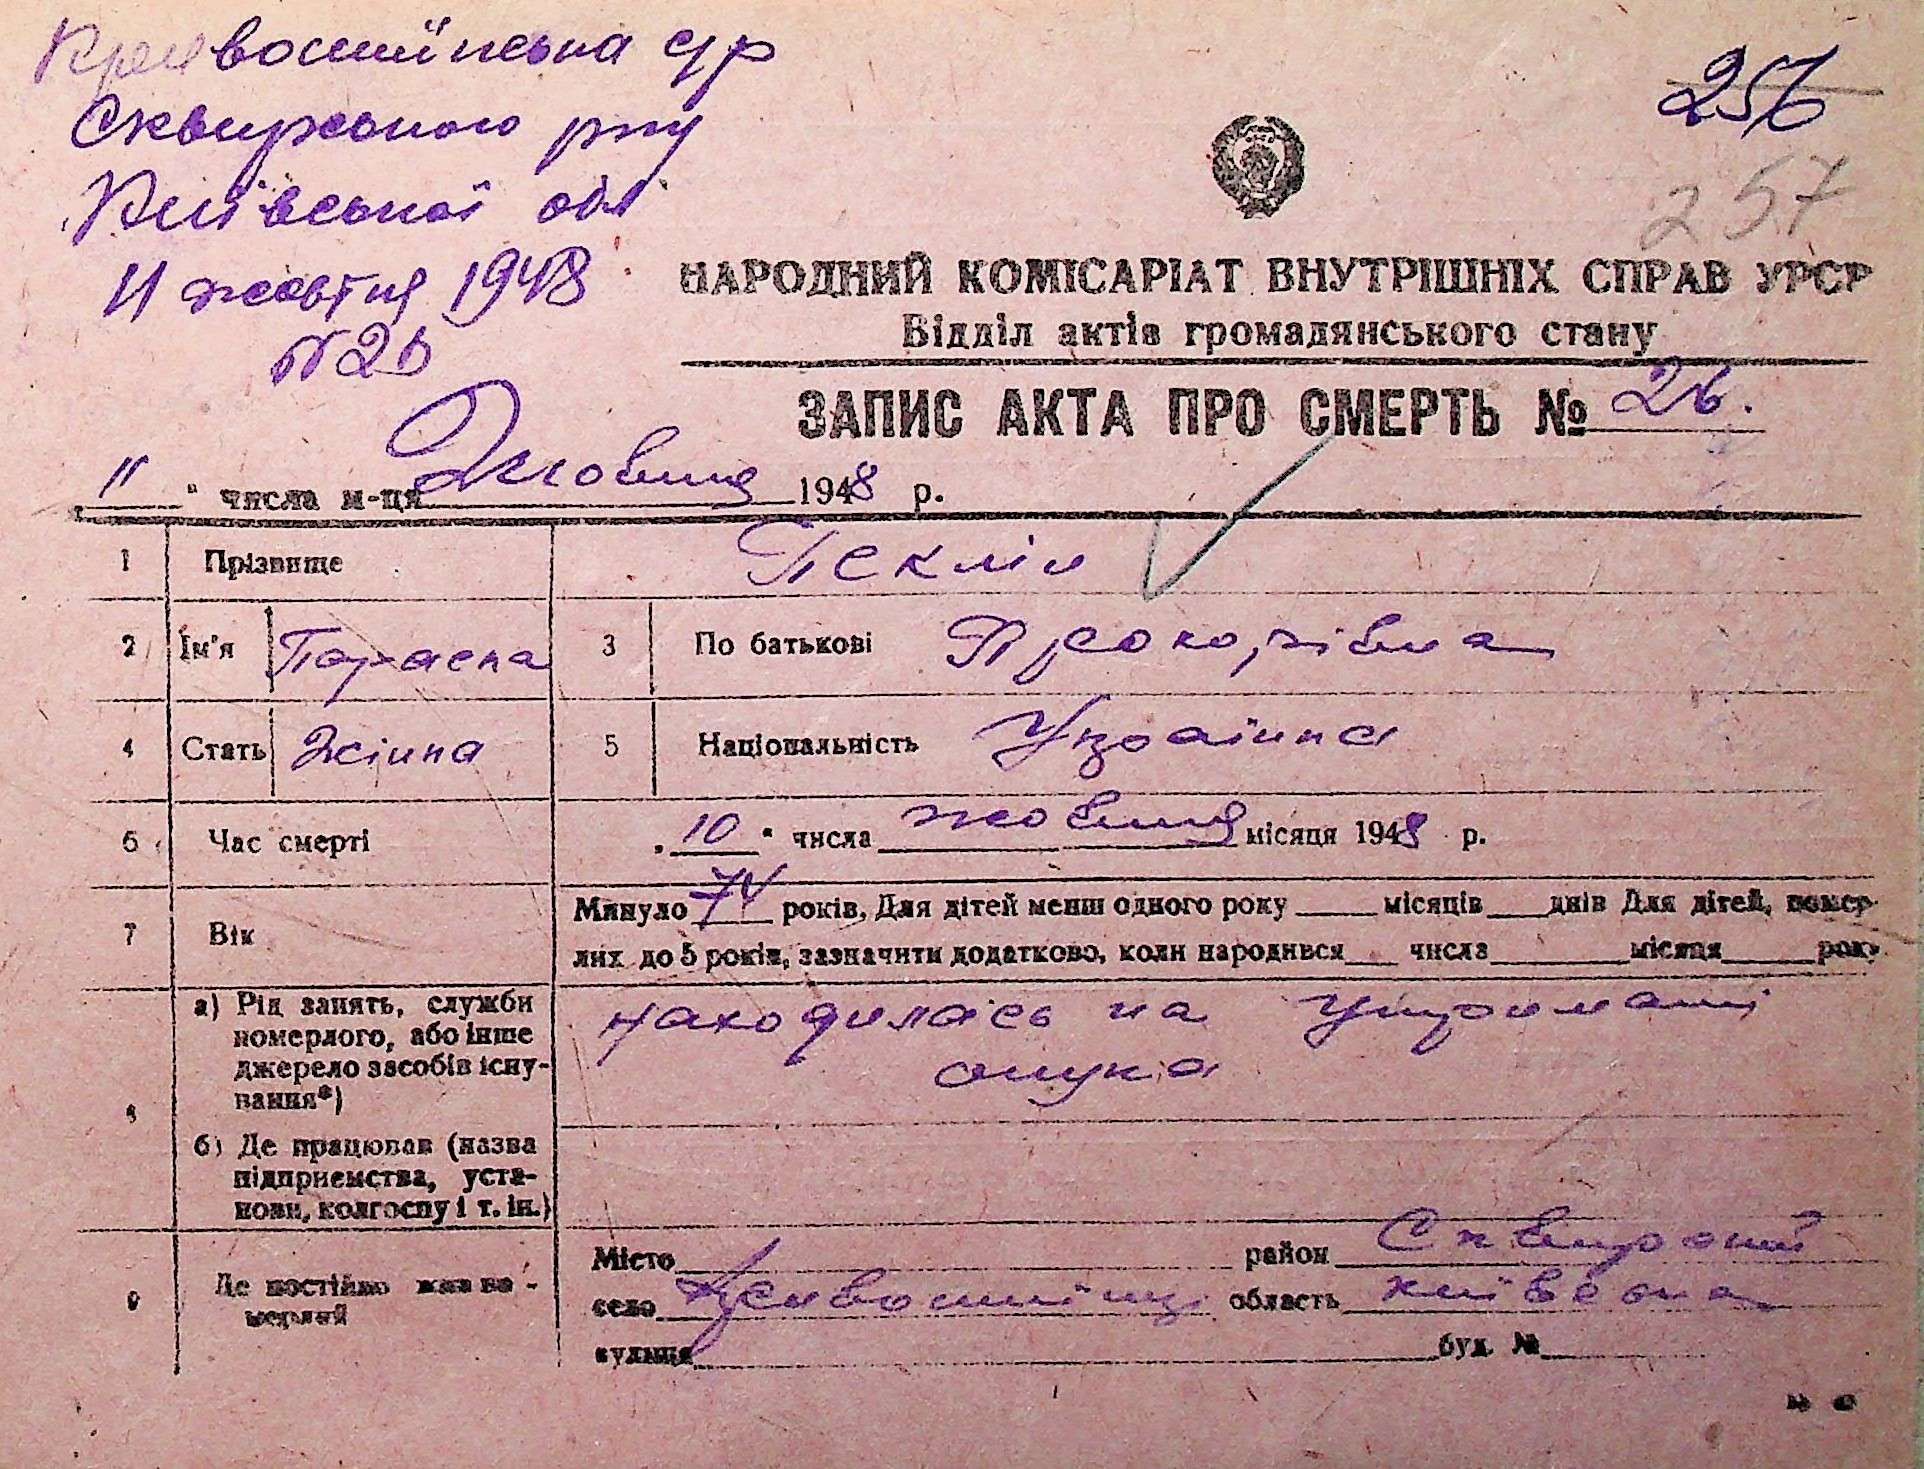 Кривошиїнська с/р
Сквирського р-ну
Київської обл
11 жовтня 1948
№26
256
257
НАРОДНИЙ КОМІСАРІАТ ВНУТРІШНІХ СПРАВ УРСР
Відділ актів громадянського стану
ЗАПИС АКТА ПРО СМЕРТЬ № 26.
"11" числа м-ця Жовтня 1948 р.
1 Прізвище Пекліч
2 Ім'я Параска 3 По батькові Прокопівна
4 Стать Жінка 5 Національність Українка
6 Час смерті "10" числа жовтня місяця 1948 р.
7 Вік Минуло 74 років, Для дітей менш одного року ___ місяців ___ днів Для дітей, помер-
лих до 5 років, зазначити додатково, коли народився ___ числа ___ місяця ___ року
8 а) Рід занять, служби
померлого, або інше
джерело засобів існу-
вання*)
находилась на утриманні
онука
б) Де працював (назва
підприємства, уста-
нови, колгоспу і т. ін.)
9 Де постійно жив по-
мерлий
Місто ___ район Сквирський
село Кривошиїнці область київська
вулиця ___ буд. № ___